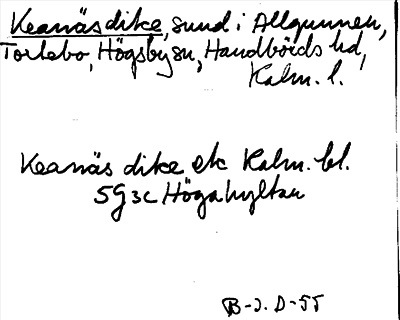 Keanäs dike, sund i Allgunnen,
Torlebo, Högsby sn, Handbörds hd,
Kalm. l.
Keanäs dike ek Kalm. bl.
5G3c Högahyltan
B-J. D-55